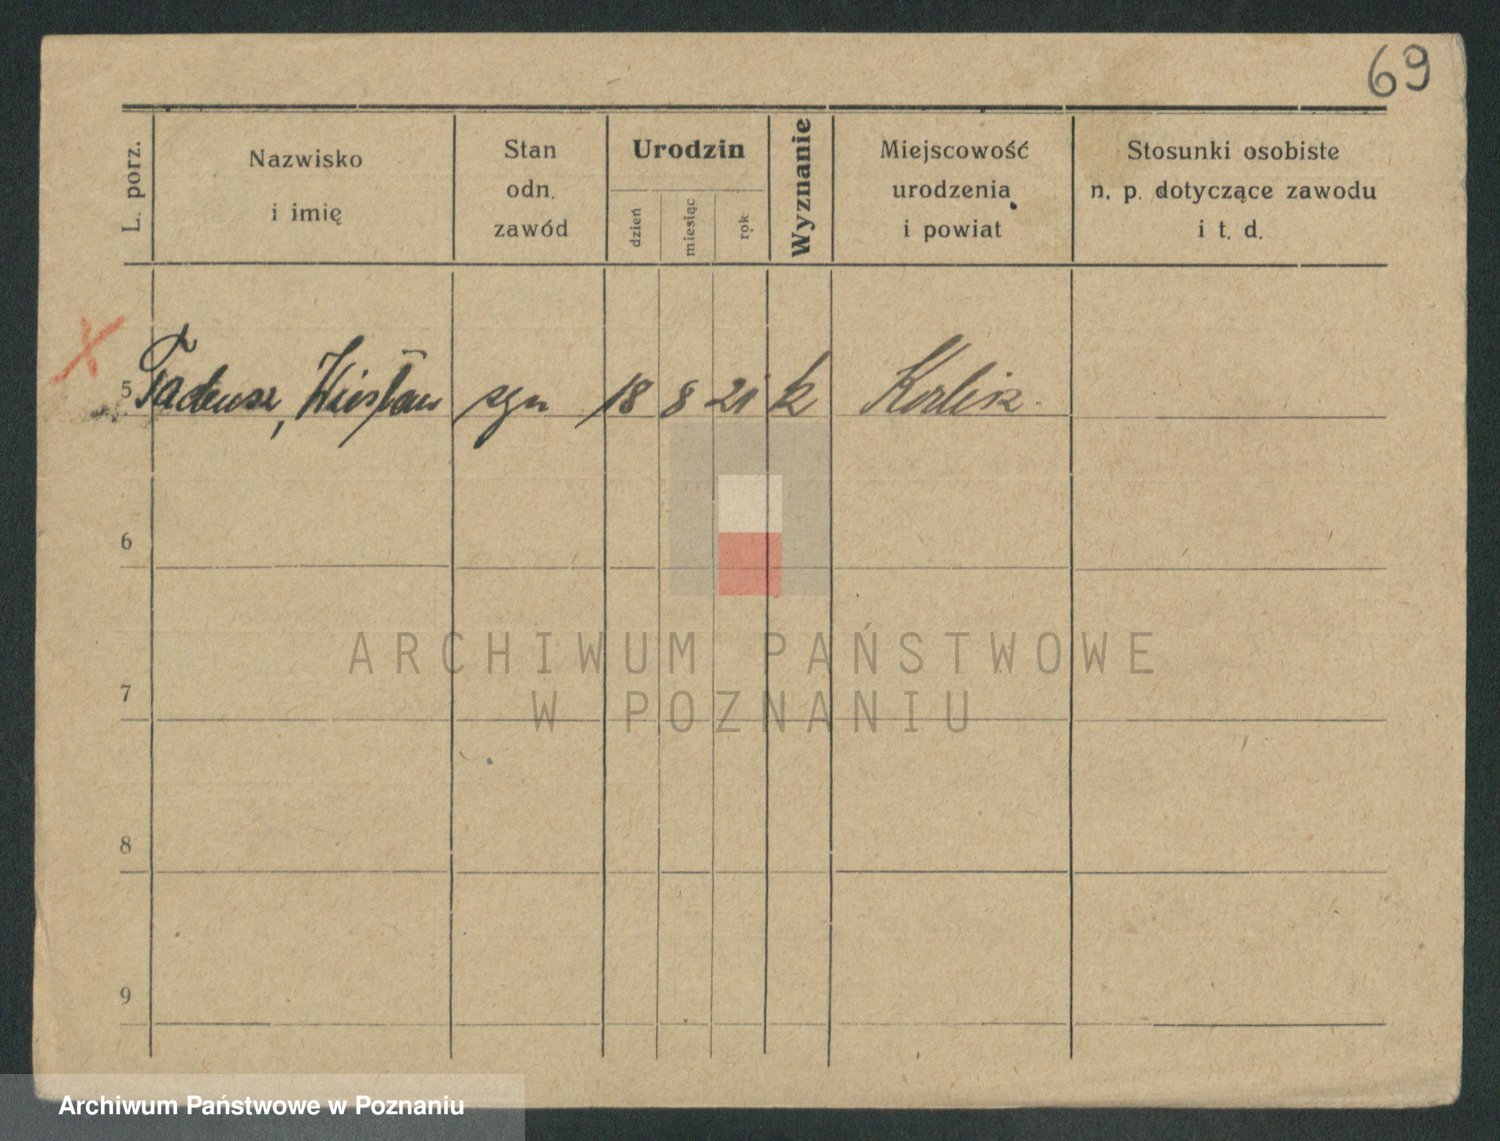 69
L. porz.
Nazwisko
i imię
Stan
odn.
zawód
Urodzin
dzień
miesiąc
rok
Wyznanie
Miejscowość
urodzenia
i powiat
Stosunki osobiste
n. p. dotyczące zawodu
i t. d.
X
5 Tadeusz, Wiesław syn 18 8 21 k
6
7
8
9
ARCHIWUM PAŃSTWOWE
W POZNANIU
Archiwum Państwowe w Poznaniu